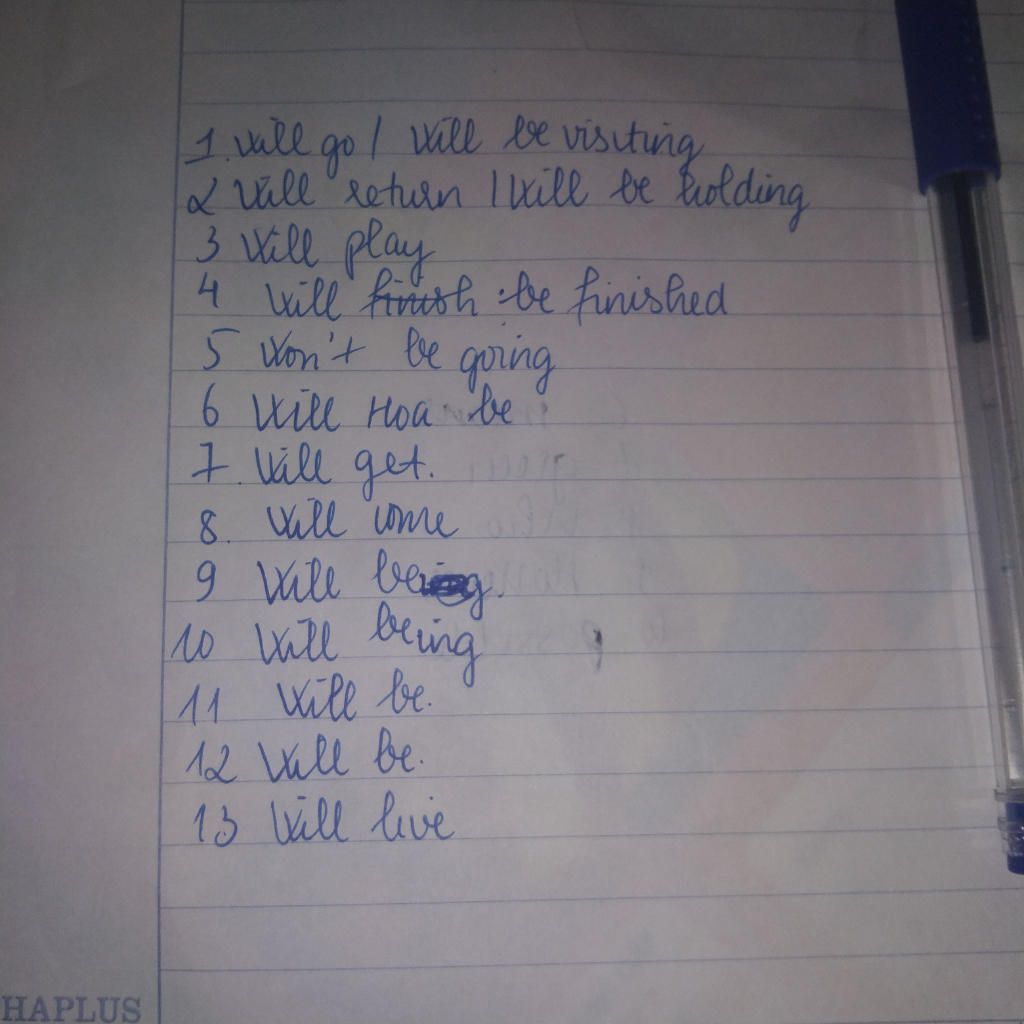 1. Will go / Will be visiting
2 Will return / Will be holding
3 Will play
4 Will finish be finished
5 Won't be going
6 Will Hoa be
7. Will get.
8. Will come
9 Will be
10 Will being
11 Will be.
12 Will be.
13 Will live
HAPLUS